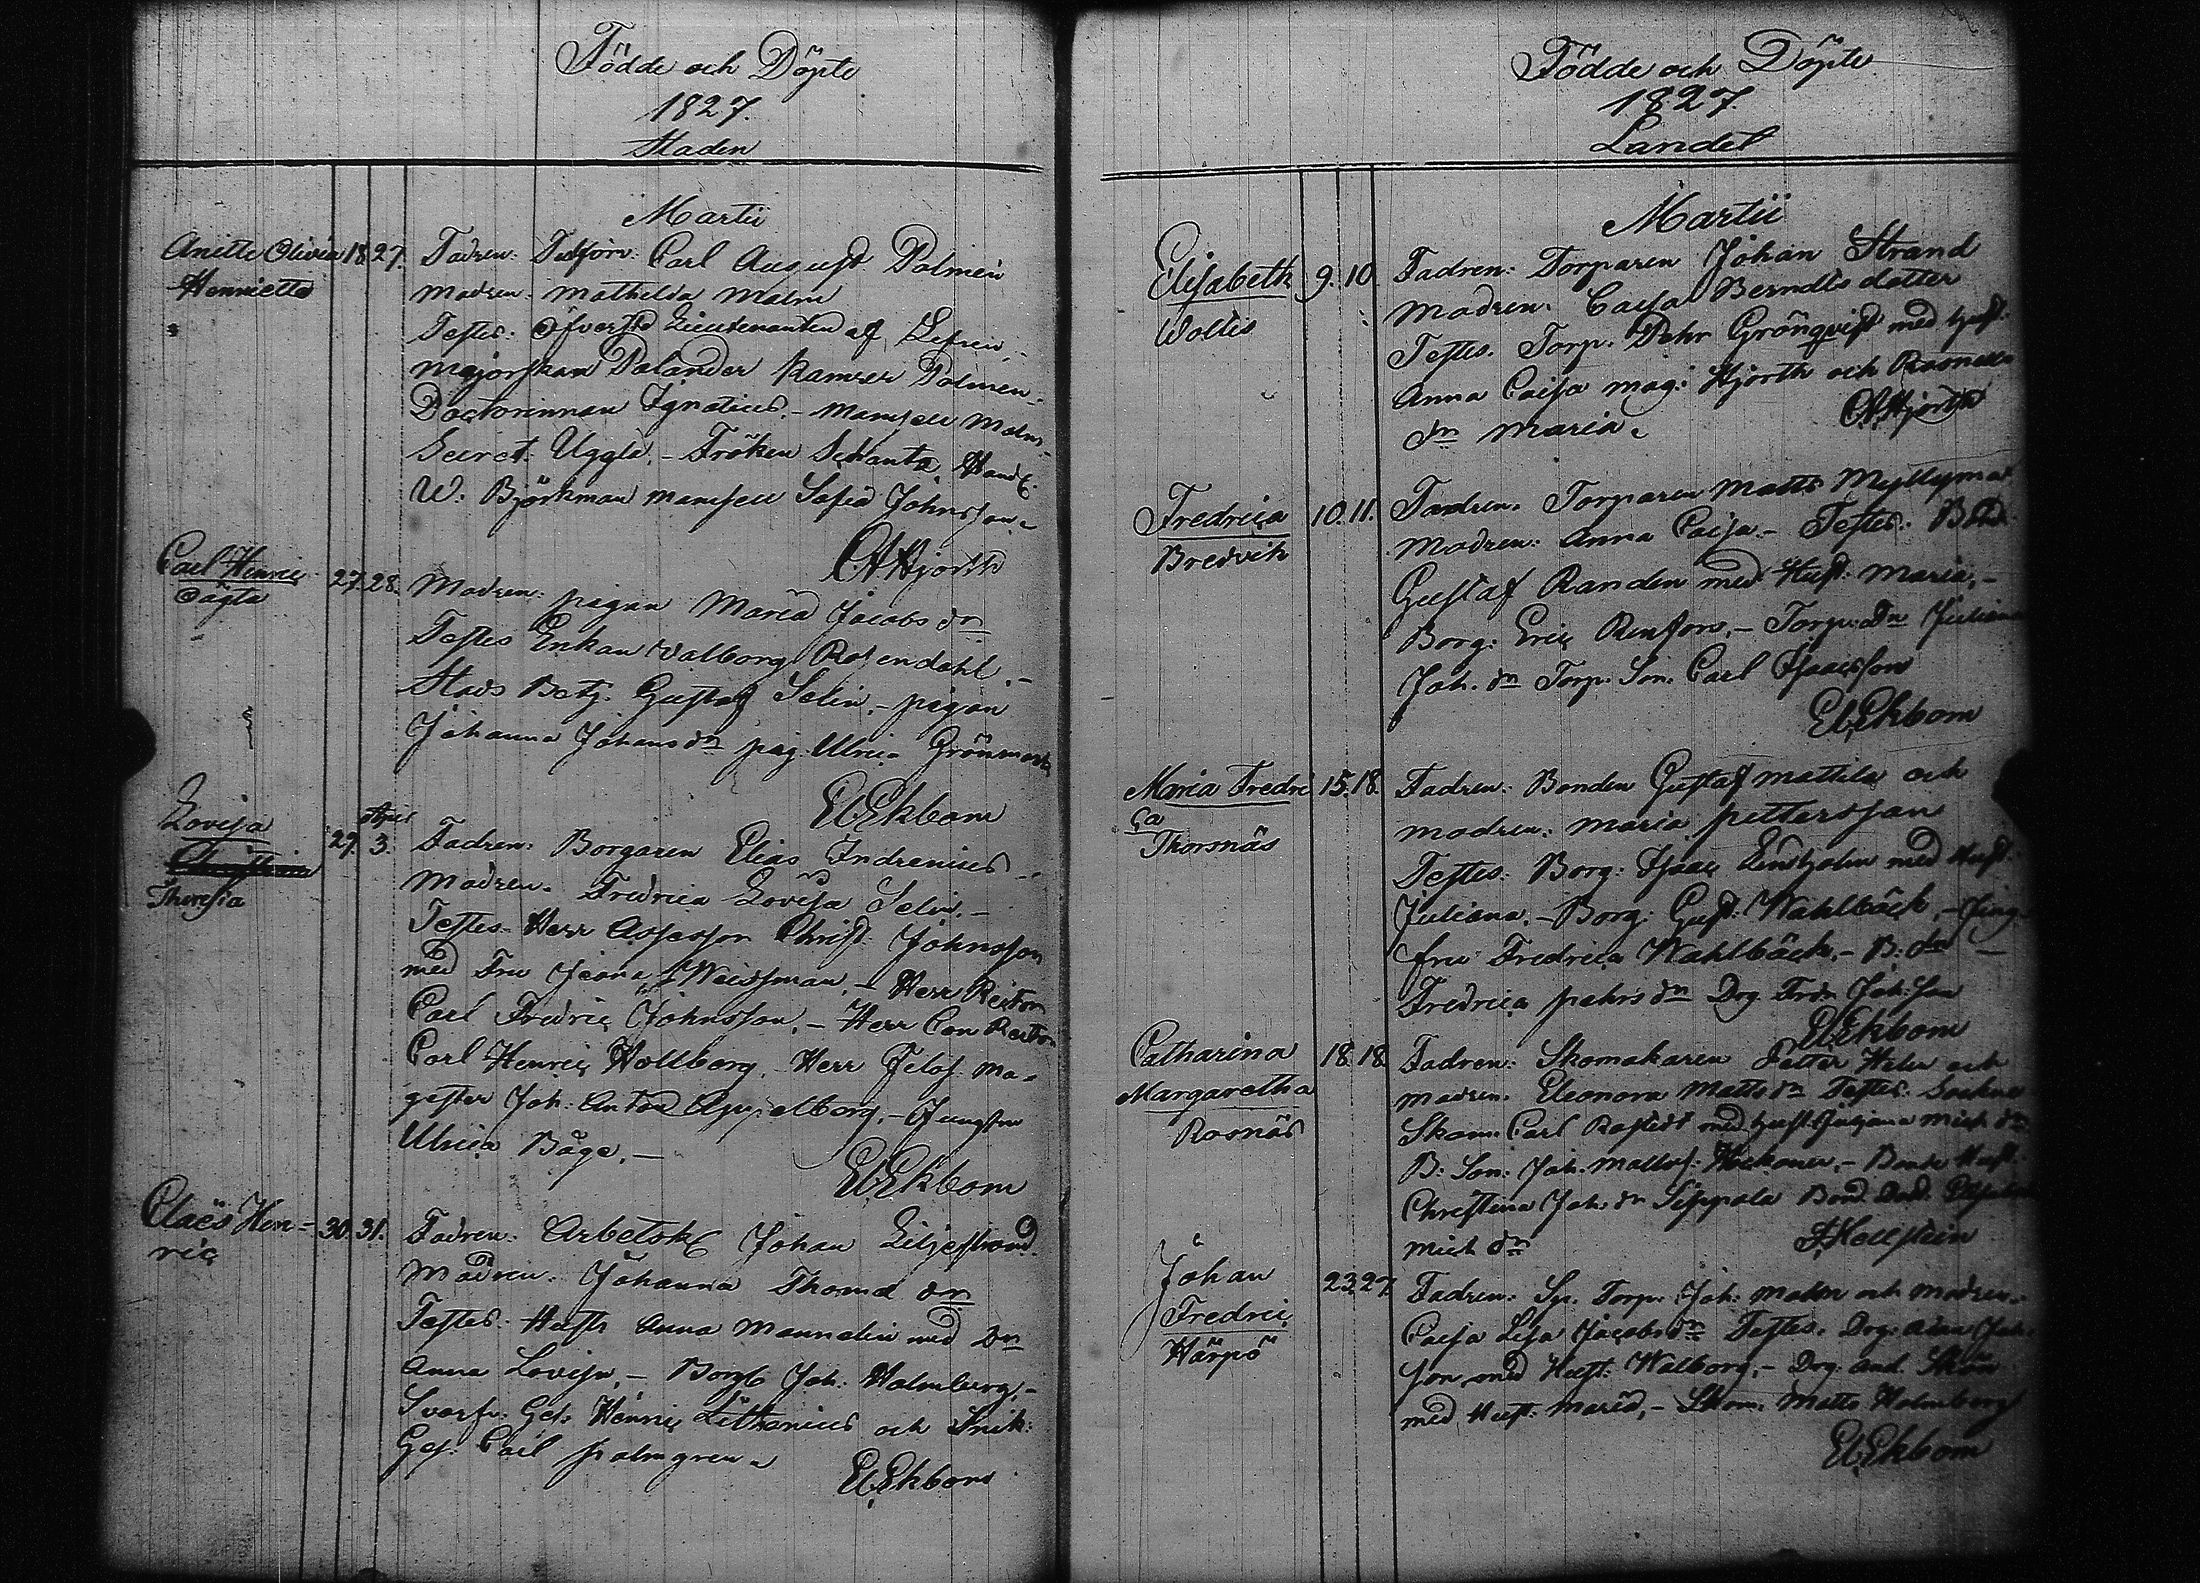 Födde och Döpte
1827.
Staden
Martii
Anette Olivia 18. 27. Fadren: Carl August Palmén
Henrietta
Modren: Mathilda Malm
Testes: Öfverste Lieutenanten af
Majorskan Palander Kamrer Palmen
Doctorinnan Ignatius. – Mamsell Malm
Secret. Uggla. – Fröken Schantz Handl.
W. Björkman Mamsell Sofia Johnsson
CAHjorth
Carl Henric 27. 28. Modren: pigan Maria Jacobs dr
oägta
Testes Enkan Walborg Rosendahl. –
Stads Betj: Gustaf Selin. – pigan
Johanna Johans dr pig. Ulrica Grönmark
EEkbom
Lovisa
April
29. 3. Fadren: Borgaren Elias Indrenius
Theresia
Modren: Fredrica Lovisa Selin. –
Testes: Herr Assessor Christ. Johnsson
med Fru Jeana Weissman, – Herr Rector
Carl Fredric Johnsson, – Herr Con Rector
Carl Henric Hollberg. – Herr Filos. Ma-
gister Joh. Anton Appelberg. – Jungfru
Ulrica Båge. –
EEkbom
Claës Hen- 30. 31. Fadren: Arbetsk. Johan Liljestrand.
ric
Modren: Johanna Thomæ dr
Testes: Hustr. Anna Mannelin med Dr
Anna Lovisa, – Borg. Joh: Holmberg, –
Svarfv. Ges. Henric Lithenius och Snik:
Ges. Carl Palmgren
EEkbom
Födde och Döpte
1827.
Landet
Martii
Elisabeth 9. 10. Fadren: Torparen Johan Strand
Woltis
Modren: Caisa Berndts dotter
Testes. Torp. Pehr Grönqvist med hust.
Anna Caisa mag: Hjorth och
dr Maria.
CAHjorth
Fredrica 10. 11. Fadren: Torparen Matts Myllymä
Bredvik
Modren: Anna Caisa. – Testes: Bond.
Gustaf Randen med Hust: Maria. –
Borg: Eric Renfors, – Torp: Dr Juliana
Joh. dr Torp. Son. Carl Isaacsson
EEkbom
Maria Fredri 15. 18. Fadren: Bonden Gustaf Mattila och
ca
Thorsnäs
Modren: Maria Pettersson
Testes: Borg: Isaac Lindholm med Hust.
Juliana. – Borg: Gust: Wahlbäck, – Jung
fru Fredrica Wahlbäck. – B: dr –
Fredrica pehrs dr Drg. Fredr. Joh.son
EEkbom
Catharina 18. 18. Fadren: Skomakaren Petter Helen och
Margaretha
Rosnäs
Modren. Eleonora Matts dr Testes: Sockne
Skom: Carl Rostedt med hust. Mich dr
B: Son: Joh. Mattss. – Bonde Hust.
Christina Joh. dr Seppala Bond.
Mich dr
Hollstein
Johan 23. 27. Fadren: Sp. Torp. Joh: Malm och Modren
Fredric
Härpö
Caisa Lisa Jacobs dr Testes. Drg: Adam Joh.
son med Hust. Walborg, – Drg: And.
med Hust: Maria, – Skom: Matts Holmberg
EEkbom